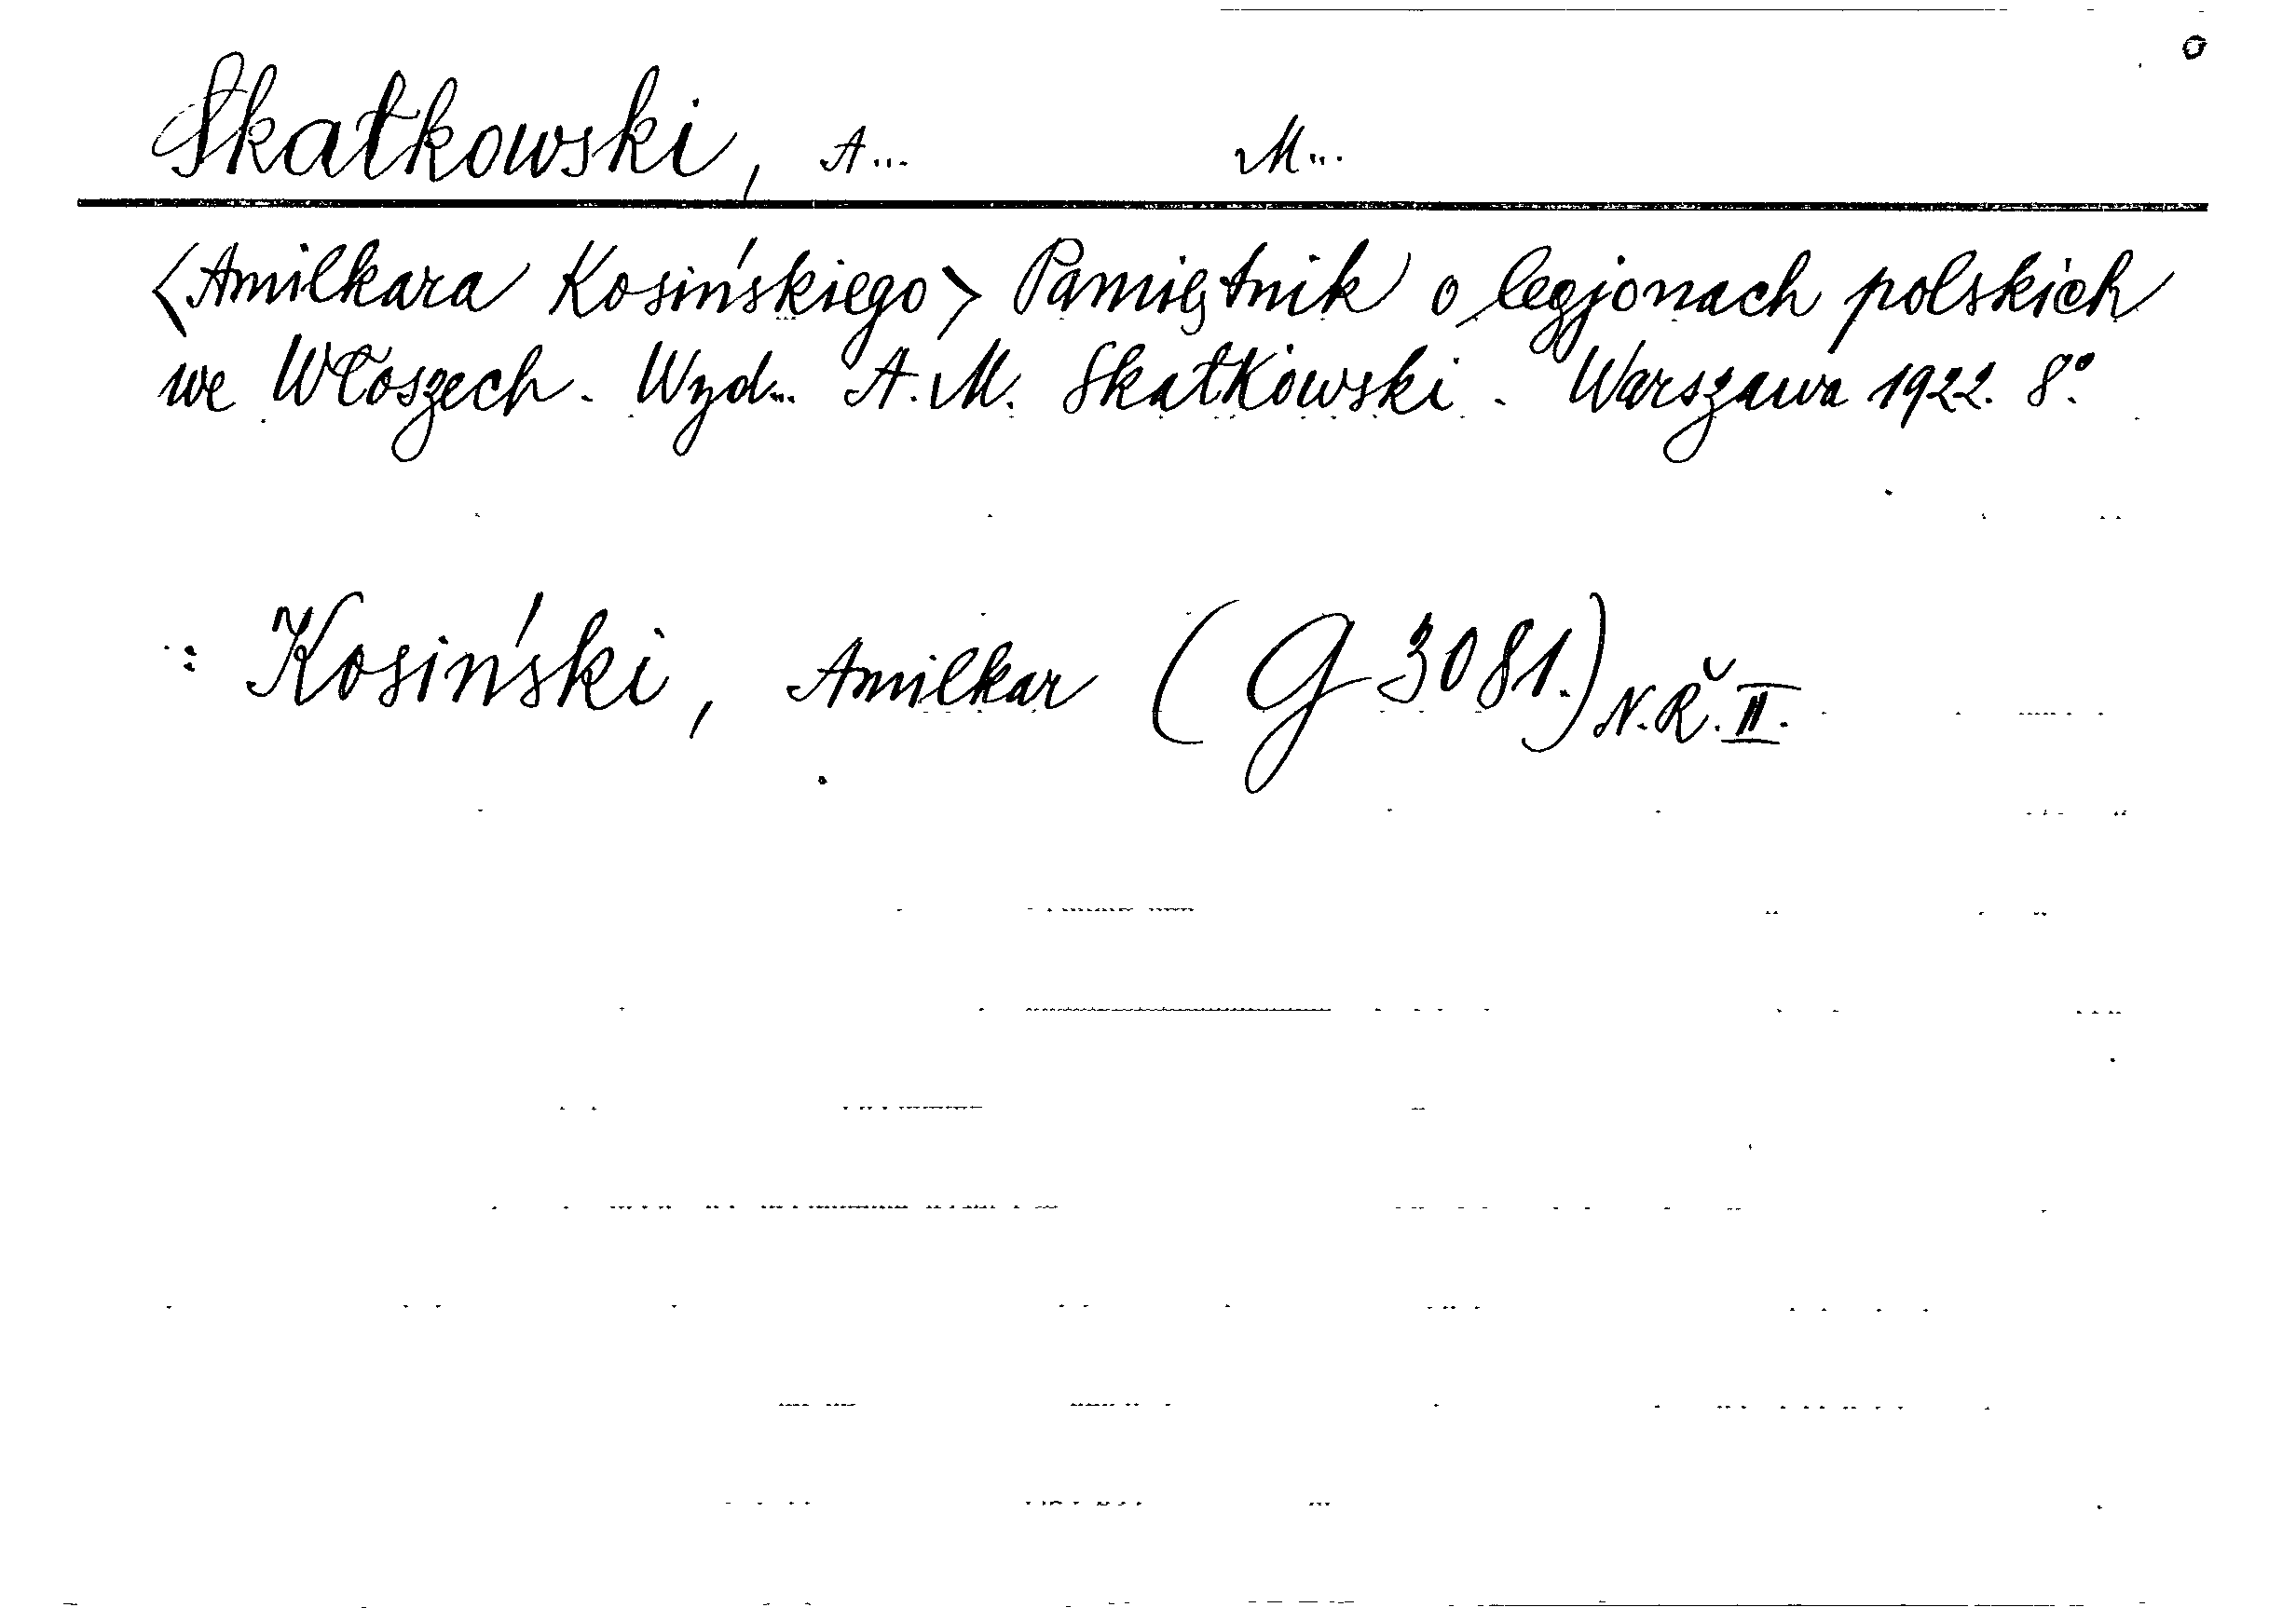 Skatkowski, A... M...
<Amilkara Kosińskiego> Pamiętnik o legjonach polskich
we Włoszech. Wyd... A. M. Skatkowski. Warszawa 1922. 8°.
: Kosiński, Amilkar (G 3081.) N. Ř. II.